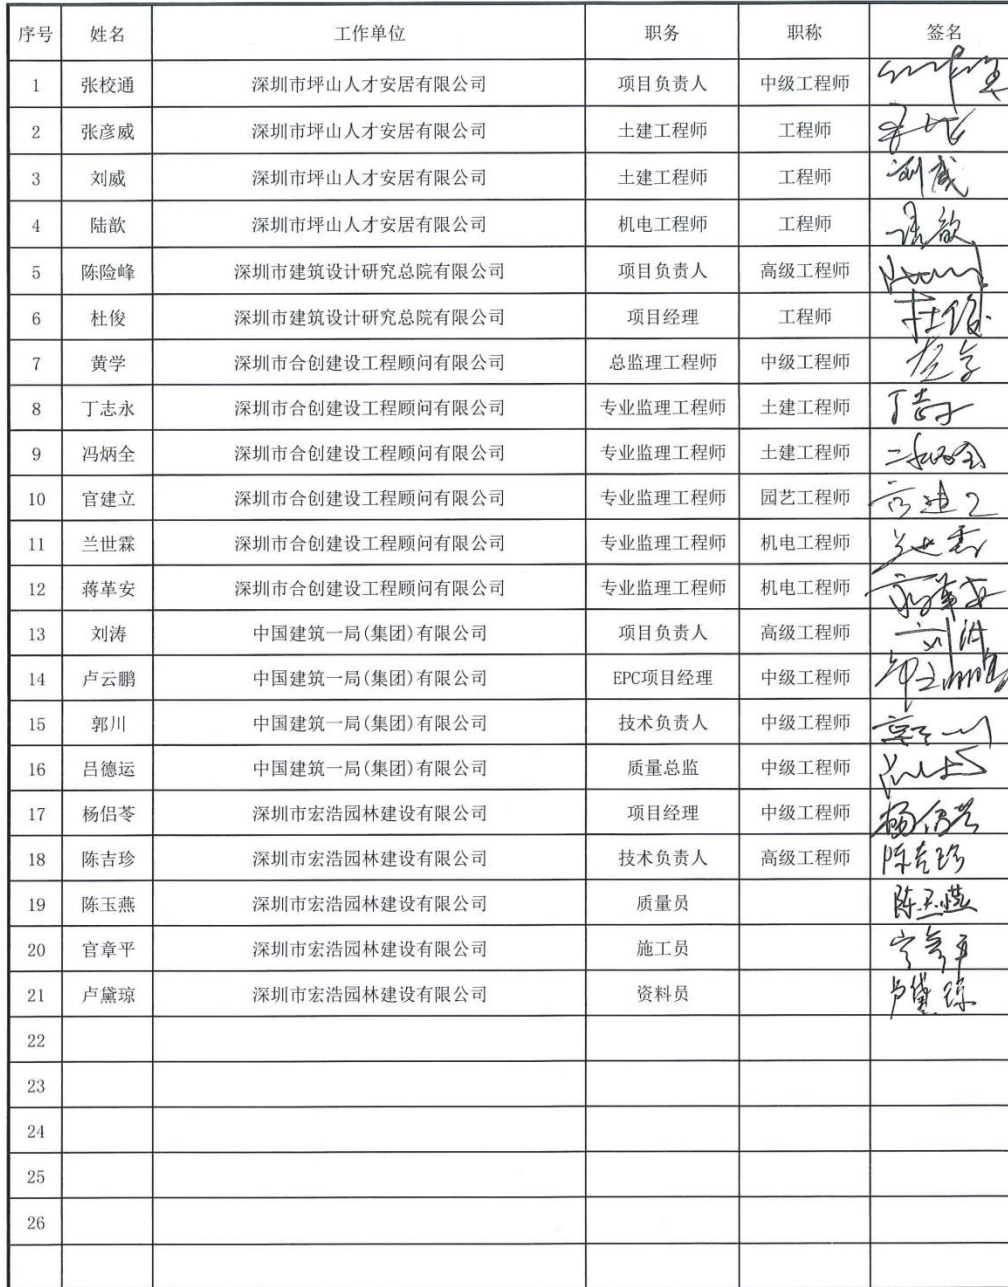 序号 姓名 工作单位 职务 职称 签名
1 张校通 深圳市坪山人才安居有限公司 项目负责人 中级工程师
2 张彦威 深圳市坪山人才安居有限公司 土建工程师 工程师
3 刘威 深圳市坪山人才安居有限公司 土建工程师 工程师 刘威
4 陆歆 深圳市坪山人才安居有限公司 机电工程师 工程师 陆歆
5 陈险峰 深圳市建筑设计研究总院有限公司 项目负责人 高级工程师
6 杜俊 深圳市建筑设计研究总院有限公司 项目经理 工程师 杜俊
7 黄学 深圳市合创建设工程顾问有限公司 总监理工程师 中级工程师
8 丁志永 深圳市合创建设工程顾问有限公司 专业监理工程师 土建工程师
9 冯炳全 深圳市合创建设工程顾问有限公司 专业监理工程师 土建工程师
10 官建立 深圳市合创建设工程顾问有限公司 专业监理工程师 园艺工程师
11 兰世霖 深圳市合创建设工程顾问有限公司 专业监理工程师 机电工程师
12 蒋革安 深圳市合创建设工程顾问有限公司 专业监理工程师 机电工程师
13 刘涛 中国建筑一局(集团)有限公司 项目负责人 高级工程师 刘涛
14 卢云鹏 中国建筑一局(集团)有限公司 EPC项目经理 中级工程师
15 郭川 中国建筑一局(集团)有限公司 技术负责人 中级工程师
16 吕德运 中国建筑一局(集团)有限公司 质量总监 中级工程师
17 杨侣苓 深圳市宏浩园林建设有限公司 项目经理 中级工程师 杨侣苓
18 陈吉珍 深圳市宏浩园林建设有限公司 技术负责人 高级工程师 陈吉珍
19 陈玉燕 深圳市宏浩园林建设有限公司 质量员 陈玉燕
20 官章平 深圳市宏浩园林建设有限公司 施工员
21 卢黛琼 深圳市宏浩园林建设有限公司 资料员 卢黛琼
22
23
24
25
26